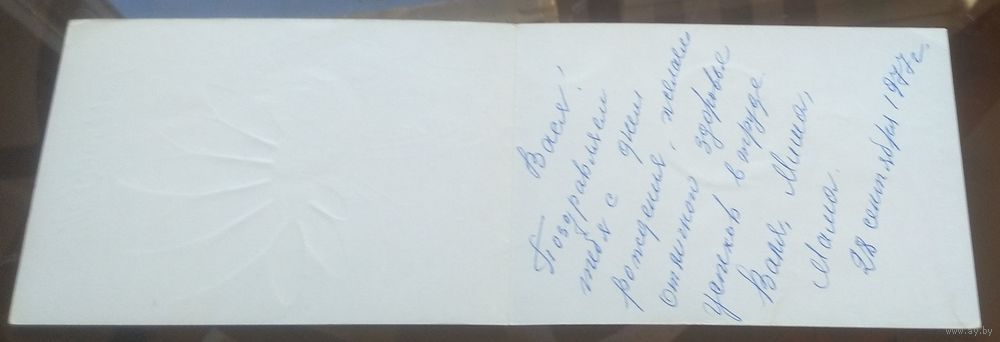 Вася!
Поздравляем
тебя с днем
рождения. желаем
отличного здоровья
успехов в труде.
Валя, Миша,
Мама.
28 сентября 1977 г.
www.ay.by